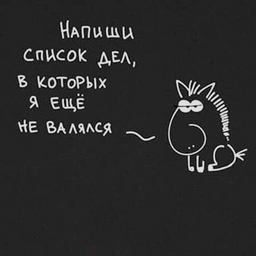 Напиши
список дел,
в которых
я ещё
не валялся